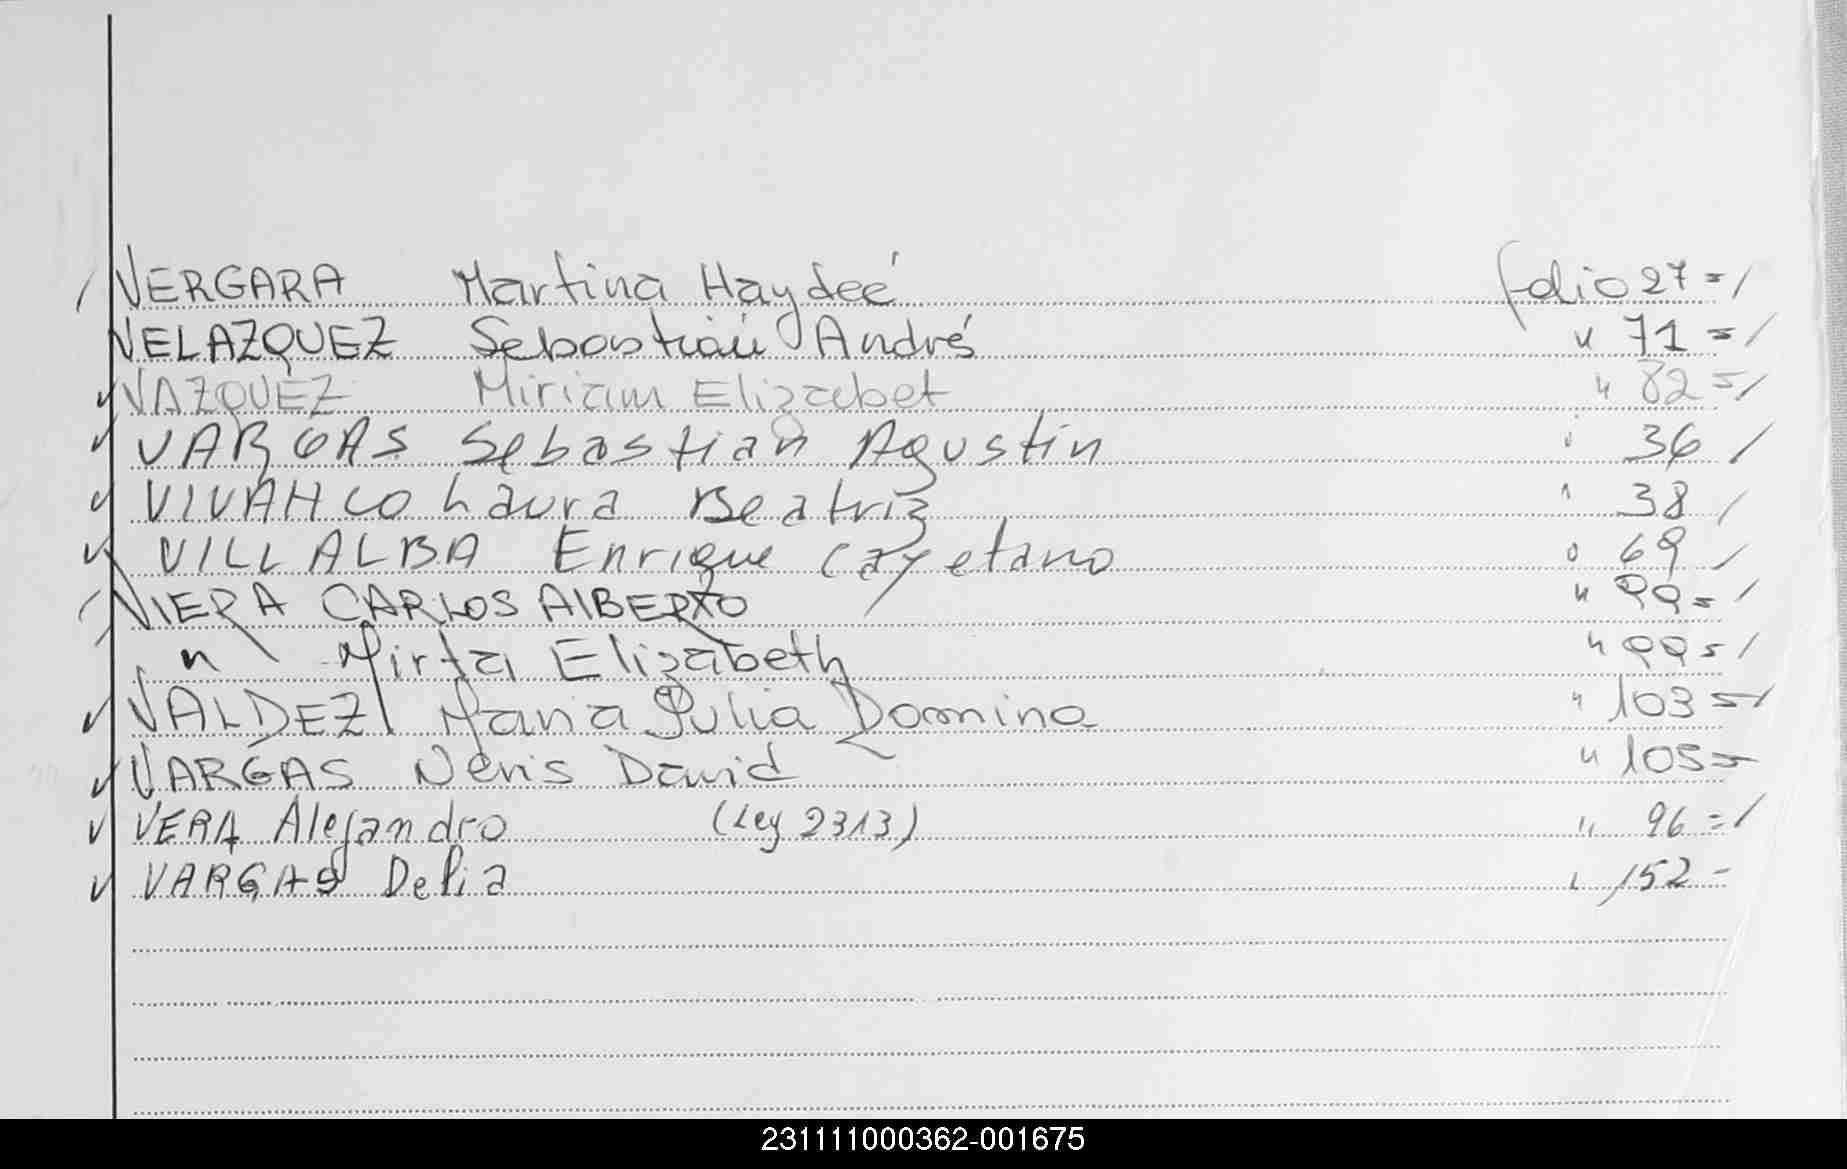 VERGARA Martina Haydeé folio 27 = /
VELAZQUEZ Sebastián André " 71 = /
VAZQUEZ Miriam Elizabet " 82 = /
VARGAS Sebastian Agustin " 36 /
VIVANCO Laura Beatriz " 38 /
VILLALBA Enrique Cayetano " 69 /
VIERA CARLOS AlBERTO " 99 = /
" Mirta Elizabeth " 99 = /
VALDEZ Maria Julia Domina " 103 = /
VARGAS Neris David " 105 =
VERA Alejandro (Ley 2313) " 96 = /
VARGAS Delia " 152 -
231111000362-001675